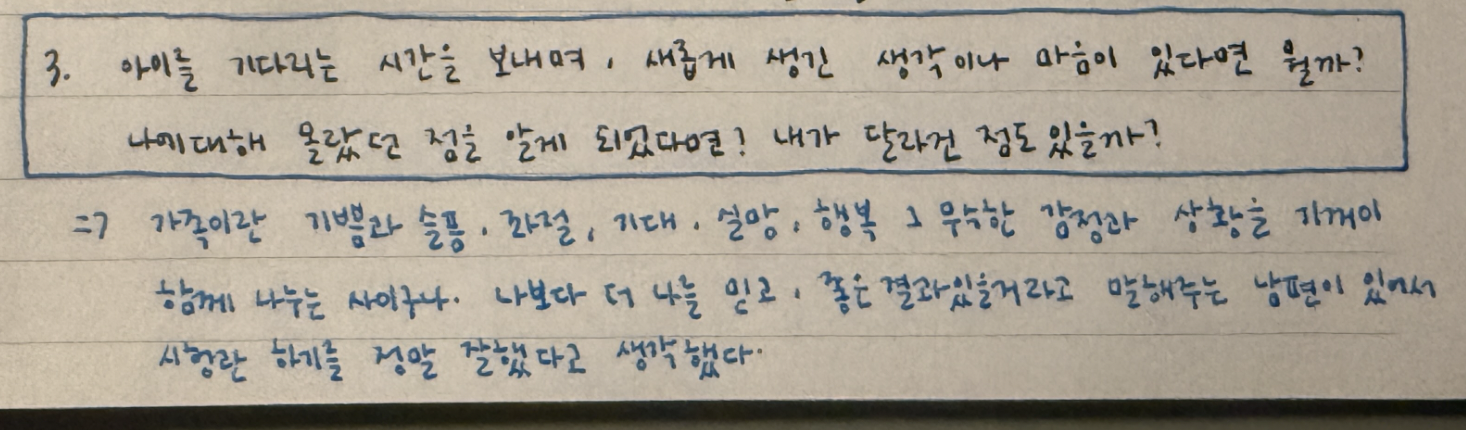 3. 아이를 기다리는 시간을 보내며, 새롭게 생긴 생각이나 마음이 있다면 뭘까?
나에대해 몰랐던 점을 알게 되었다면? 내가 달라진 점도 있을까?
=> 가족이란 기쁨과 슬픔, 좌절, 기대, 실망, 행복 그 무수한 감정과 상황을 기꺼이
함께 나누는 사이구나. 나보다 더 나를 믿고, 좋은 결과있을거라고 말해주는 남편이 있어서
시험관 하기를 정말 잘했다고 생각했다.